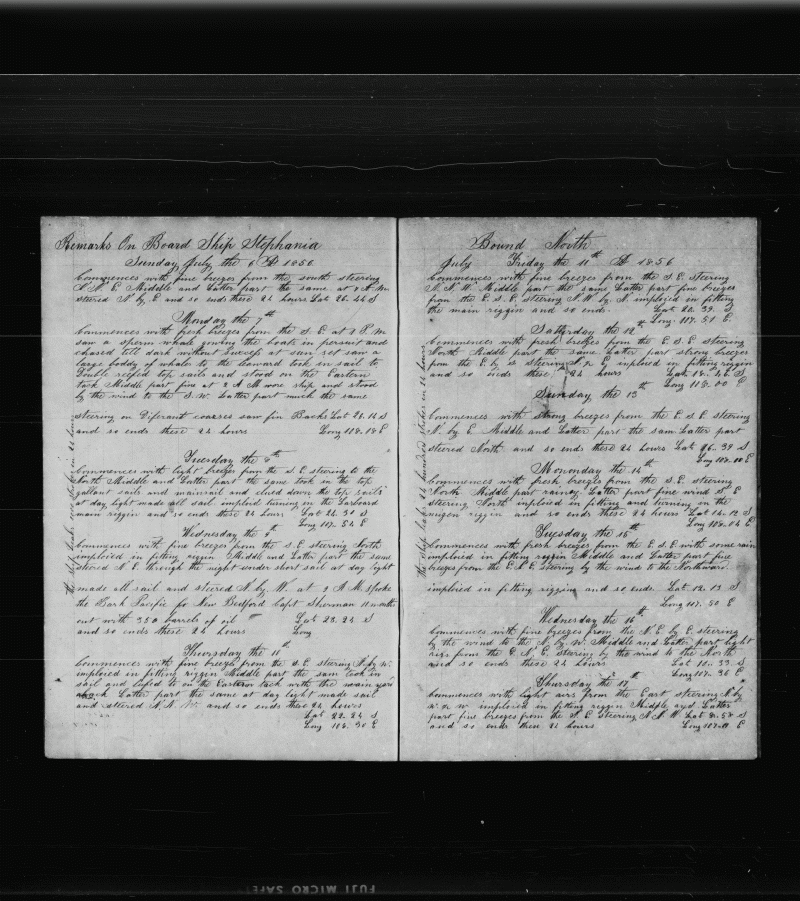 Remarks On Board Ship Stephania
Sunday July the 6 AD 1856
Commences with fine breezes from the south steering
N.N.E. Middle and Latter part the same at 7 A.M
steered N by E and so ends these 24 hours Lat 26.44 S
Monday the 7th
Commences with fresh breezes from the S.E at 2 P.M
saw a sperm whale gowing the boats in persuit and
chased till dark without success at sun set saw a
large boddy of whales to the Leward took in sail to
Double reefed top sails and stood on the Eastern
tack Middle part fine at 2 A M wore ship and stood
by the wind to the S.W. Latter part much the same
steering on Diferant coarses saw fin Backs Lat 26.14 S
and so ends these 24 hours Long 118.18 E
Tuesday the 8th
Commences with light breezes from the S.E steering to the
North Middle and Latter part the same took in the top
gallant sails and mainsail and clued down the top sails
at day light made all sail imploied turning in the Larboard
main riggin and so ends these 24 hours Lat 24.30 S
Long 117.54 E
Wednesday the 9th
Commences with fine breezes from the S.E steering North
imploied in fitting riggin Middle and Latter part the same
steered N.E. through the night under short sail at day light
made all sail and steered N. by W. at 9 A M spoke
the Bark Pacific fo New Bedford Capt Sherman 11 months
out with 350 barrels of oil Lat 23.24 S
and so ends these 24 hours Long
Thursday the 10th
Commences with fine breezes from the S.E steering N by W.
imploied in fitting riggin Middle part the same took in
sail and lufed to on the Eastern tack with the main yard
aback Latter part the same at day light made sail
and steered N.N.W. and so ends these 24 hours
Lat 22.24 S
Long 116.30 E
Bound North
July Friday the 11th AD 1856
Commences with fine breezes from the S.E. steering
N.N.W. Middle part the same Latter part fine breezes
from the E.S.E. steering N.W by N. imploied in fitting
the main riggin and so ends. Lat 20.39. S
Long. 117.51 E.
Satturday the 12th
Commences with fresh breezes from the E.S.E steering
North Middle part the same Latter part strong breezes
from the E. by S steering N E imploied in fitting riggin
and so ends these 24 hours Lat 18.46 S
Long 118.00 E
Sunday the 13th
Commences with strong breezes from the E.S.E steering
N. by E Middle and Latter part the sam Latter part
steered North and so ends these 24 hours Lat 16.39 S
Long 118.00 E
Mononday the 14th
Commences with fresh breezes from the S.E. steering
North Middle part raineny Latter part fine wind S.E
steering North imploied in fitting and turning in the
mizen riggin and so ends these 24 hours Lat 14.12 S
Long 118.04 E
Tuesday the 15th
Commences with fresh breezes from the E.S.E with some rain
imploied in fitting riggin Middle and Latter part fine
breezes from the E.N.E steering by the wind to the Northward
imploied in fitting rigging and so ends. Lat 12.13 S
Long 117.50 E
Wednesday the 16th
Commences with fine breezes from the N.E. by E. steering
by the wind to the N. by W. Middle and Latter part light
airs from the E.N.E. stering by the wind to the North
and so ends these 24 hours Lat 10.33 S
Long 117.36 E
Thursday the 17th
Commences with light airs from the East steering N by
W imploied in fitting riggin Middle and Latter
part fine breezes from the S.E steering N.N.W. Lat 8.58 S
and so ends these 24 hours Long 117.11 E
FUJI MICRO SAFE